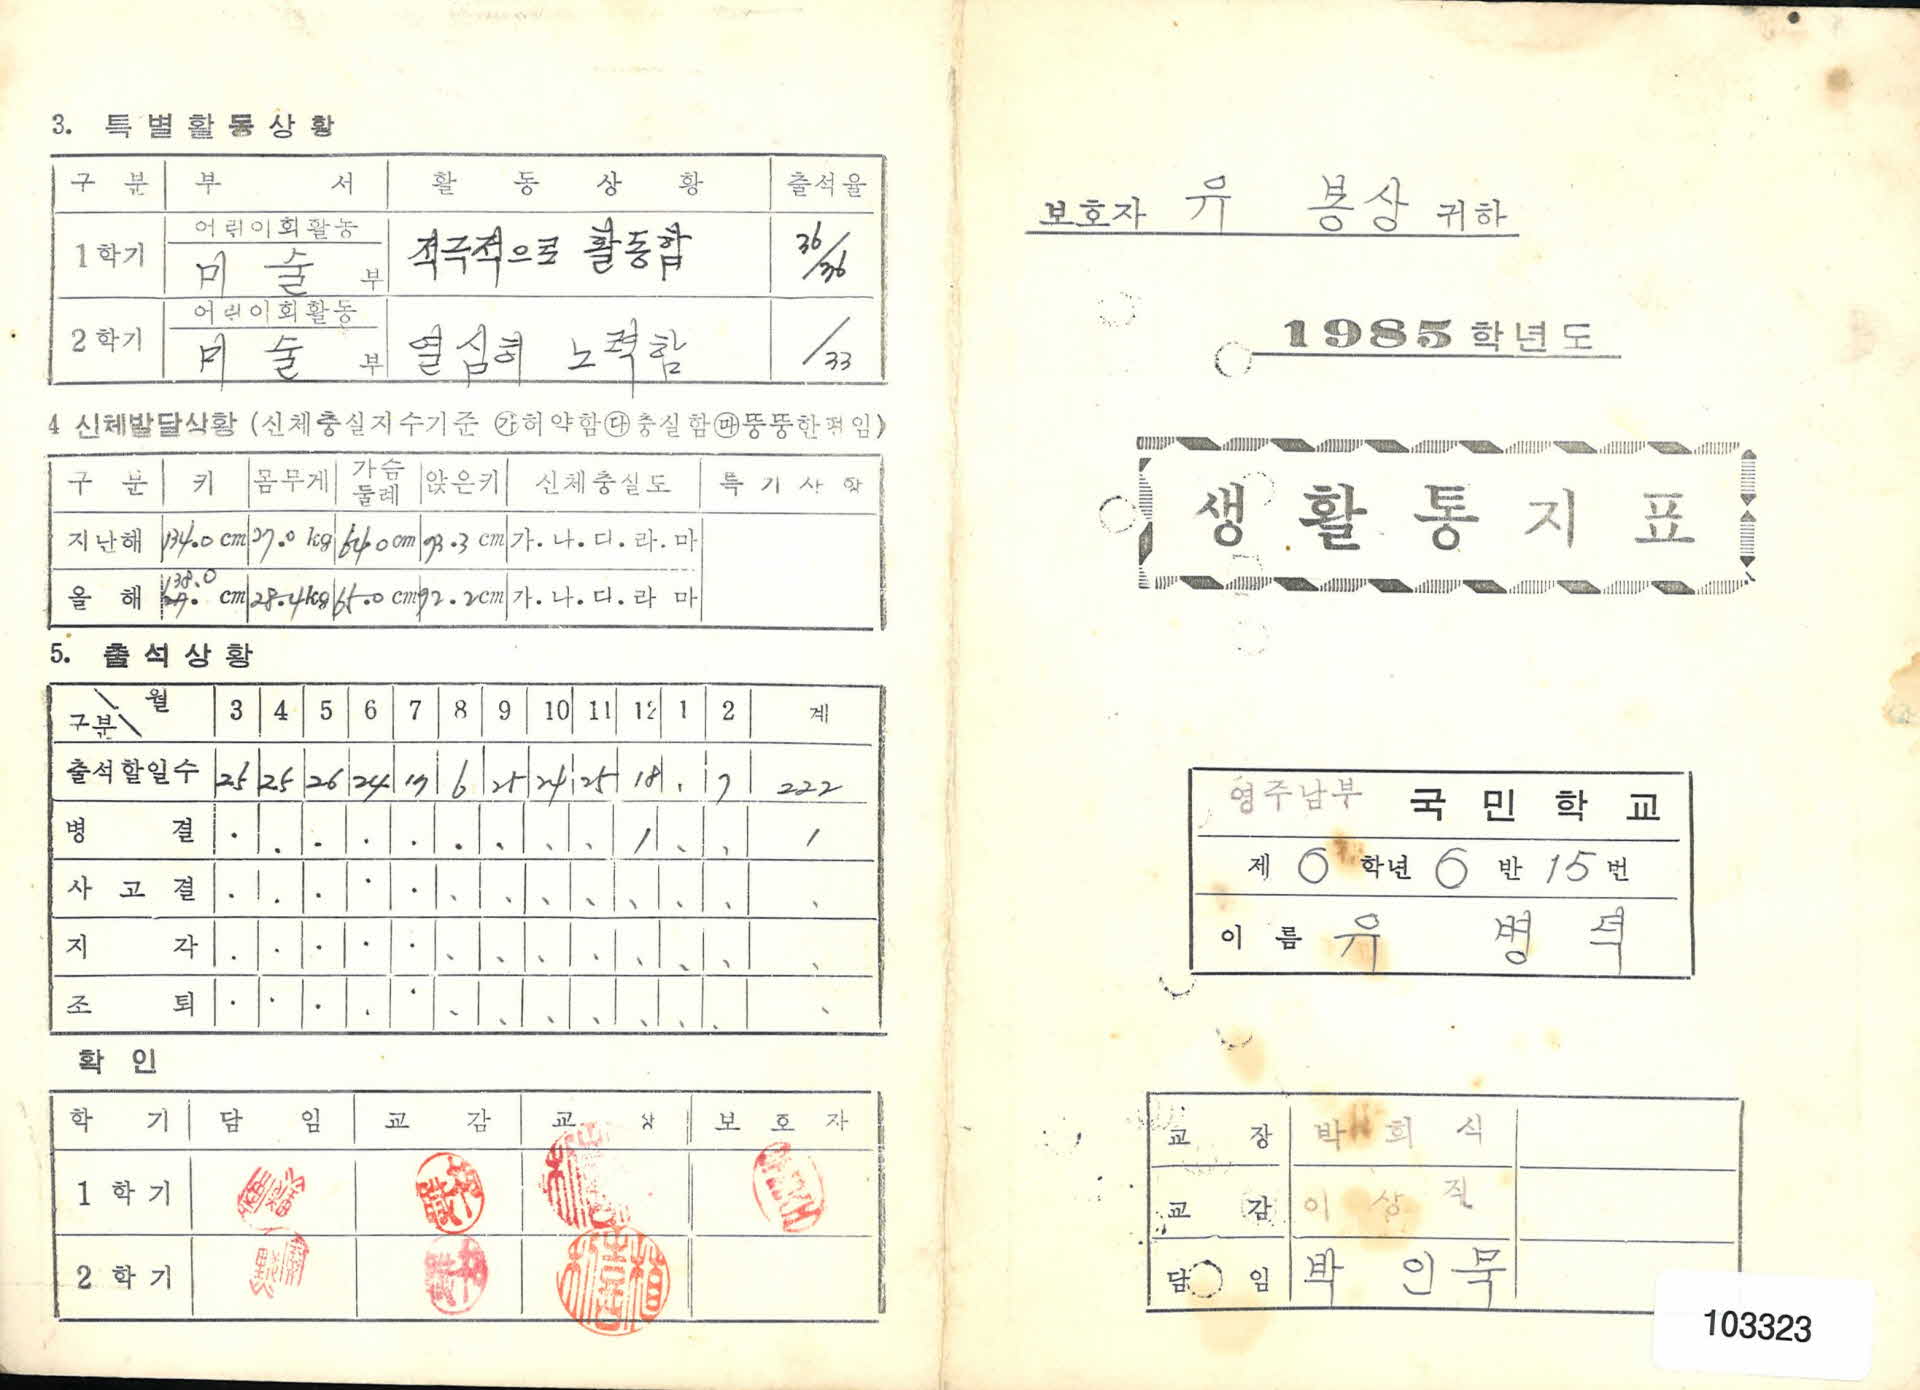 3. 특별활동상황
구 분 부 서 활 동 상 황 출석율
1학기 어린이회활동 미 술 부 적극적으로 활동함 36/36
2학기 어린이회활동 미 술 부 열심히 노력함 /33
4 신체발달상황 (신체충실지수기준 ㉮허약함㉰충실함㉲뚱뚱한편임)
구 분 키 몸무게 가슴둘레 앉은키 신체충실도 특 기 사 항
지난해 134.0 cm 27.0 kg 64.0 cm 73.3 cm 가.나.다.라.마
올 해 138.0 cm 28.4 kg 65.0 cm 72.2 cm 가.나.다.라 마
5. 출석상황
구분 월 3 4 5 6 7 8 9 10 11 12 1 2 계
출석할일수 25 25 26 24 17 6 25 24 25 18 . 7 222
병 결 . . . . . . . . . 1 . . 1
사 고 결 . . . . . . . . . . . . .
지 각 . . . . . . . . . . . . .
조 퇴 . . . . . . . . . . . . .
확 인
학 기 담 임 교 감 교 장 보 호 자
1 학 기
2 학 기
보호자 유 봉상 귀하
1985학년도
생 활 통 지 표
영주남부 국 민 학 교
제 6 학년 6 반 15 번
이 름 유 병 덕
교 장 박 희 식
교 감 이 상
담 임 박 인 묵
103323